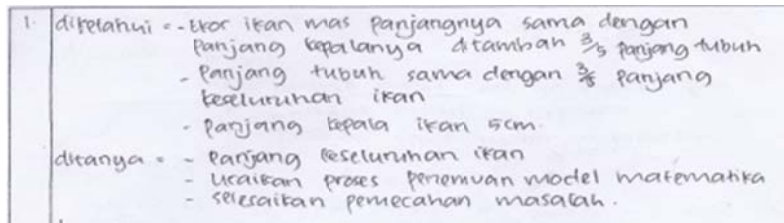 1. diketahui = - Ekor ikan mas panjangnya sama dengan
panjang kepalanya ditambah 3/5 panjang tubuh
- Panjang tubuh sama dengan 3/5 panjang
keseluruhan ikan
- panjang kepala ikan 5cm.
ditanya = - panjang keseluruhan ikan
- uraikan proses penemuan model matematika
- selesaikan pemecahan masalah.